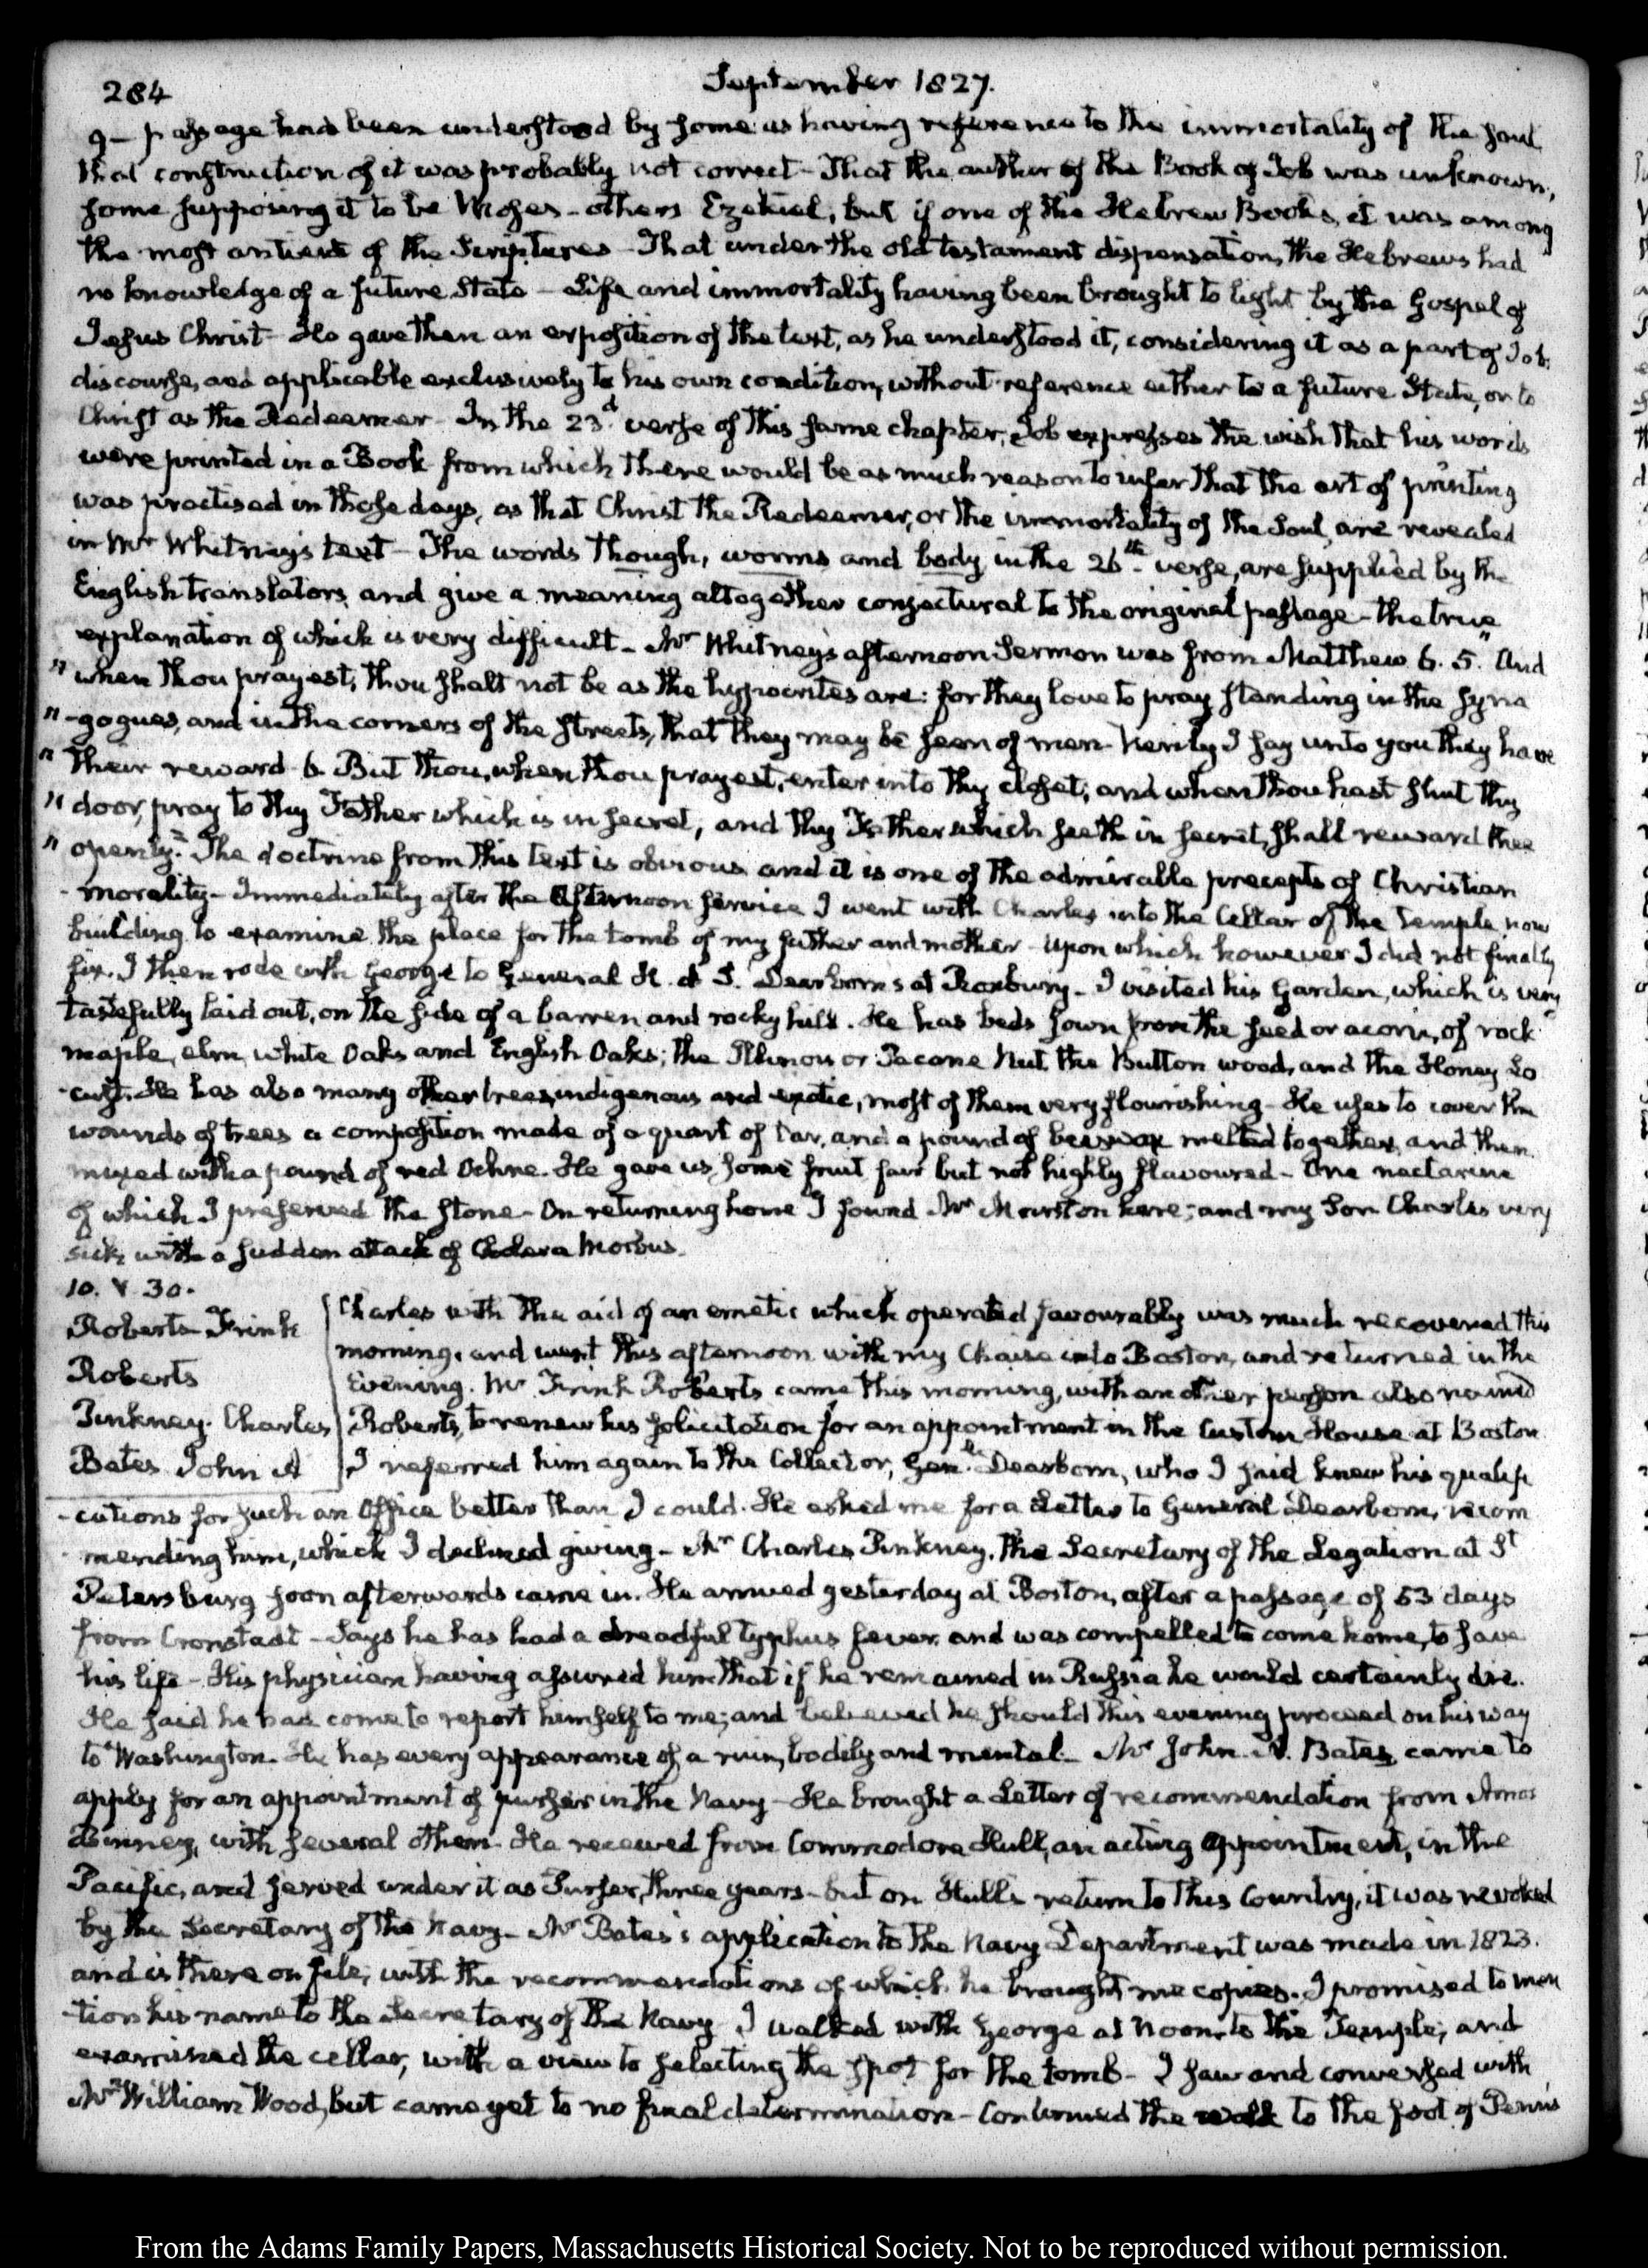 284
September 1827.
9 — passage had been understood by some as having reference to the immortality of the soul
that construction of it was probably not correct — That the author of the Book of Job was unknown,
some supposing it to be Moses — others Ezekiel, but if one of the Hebrew Books, it was among
the most antient of the Scriptures — That under the old testament dispensation, the Hebrews had
no knowledge of a future State — Life and immortality having been brought to light by the Gospel of
Jesus Christ — He gave then an exposition of the text, as he understood it, considering it as a part of Job's
discourse, and applicable exclusively to his own condition, without reference either to a future State, or to
Christ as the Redeemer — In the 23d. verse of this same chapter, Job expresses the wish that his words
were printed in a Book from which there would be as much reason to infer that the art of printing
was practised in those days, as that Christ the Redeemer, or the immortality of the Soul, are revealed
in Mr Whitney's text — The words though, worms and body in the 26th. verse, are supplied by the
English translators and give a meaning altogether conjectural to the original passage — the true
explanation of which is very difficult — Mr Whitney's afternoon Sermon was from Matthew 6. 5. "And
" when thou prayest, thou shalt not be as the hypocrites are: for they love to pray standing in the syna
" -gogues, and in the corners of the streets, that they may be seen of men — Verily I say unto you they have
" their reward — 6. But thou, when thou prayest, enter into thy closet, and when thou hast shut thy
" door, pray to thy Father which is in secret, and thy Father which seeth in secret, shall reward thee
" openly." The doctrine from this text is obvious and it is one of the admirable precepts of Christian
- morality — Immediately after the afternoon service I went with Charles into the Cellar of the Temple now
building to examine the place for the tomb of my father and mother — upon which however I did not finally
fix. I then rode with George to General H. A. S. Dearborn's at Roxbury — I visited his Garden, which is very
tastefully laid out, on the side of a barren and rocky hill. He has beds sown from the seed or acorn, of rock
maple, elm, white Oaks and English Oaks; the Illinois or Pacane Nut, the Button wood, and the Honey Lo
-cust. He has also many other trees, indigenous and exotic, most of them very flourishing — He uses to cover the
wounds of trees a composition made of a quart of tar, and a pound of beeswax melted together, and then
mixed with a pound of red Ochre. He gave us some fruit fair but not highly flavoured — One nectarine
of which I preserved the stone — On returning home I found Mr Marston here; and my Son Charles very
sick, with a sudden attack of Cholera Morbus.
10. V. 30.
Roberts Frink
Roberts
Pinkney. Charles
Bates John A
Charles with the aid of an emetic which operated favourably was much recovered this
morning, and went this afternoon with my Chaise into Boston, and returned in the
Evening. Mr Frink Roberts came this morning, with another person also named
Roberts, to renew his solicitation for an appointment in the Custom House at Boston
I referred him again to the Collector, Genl. Dearborn, who I said knew his qualifi
-cations for such an Office better than I could. He asked me for a Letter to General Dearborn, recom
mending him, which I declined giving — Mr Charles Pinkney, the Secretary of the Legation at St
Petersburg soon afterwards came in. He arrived yesterday at Boston, after a passage of 53 days
from Cronstadt — Says he has had a dreadful typhus fever, and was compelled to come home, to save
his life — His physician having assured him that if he remained in Russia he would certainly die.
He said he had come to report himself to me; and believed he should this evening proceed on his way
to Washington. He has every appearance of a ruin, bodily and mental. — Mr John A. Bates came to
apply for an appointment of purser in the Navy — He brought a Letter of recommendation from Amos
Binney, with several others. He received from Commodore Hull, an acting appointment, in the
Pacific, and served under it as Purser, three years — but on Hull's return to this Country, it was revoked
by the Secretary of the Navy — Mr Bates's application to the Navy Department was made in 1823.
and is there on file, with the recommendations of which he brought me copies. I promised to men
-tion his name to the Secretary of the Navy. I walked with George at Noon to the Temple, and
examined the cellar, with a view to selecting the spot for the tomb — I saw and conversed with
Mr William Wood, but came yet to no final determination — Continued the walk to the foot of Penn's
From the Adams Family Papers, Massachusetts Historical Society. Not to be reproduced without permission.